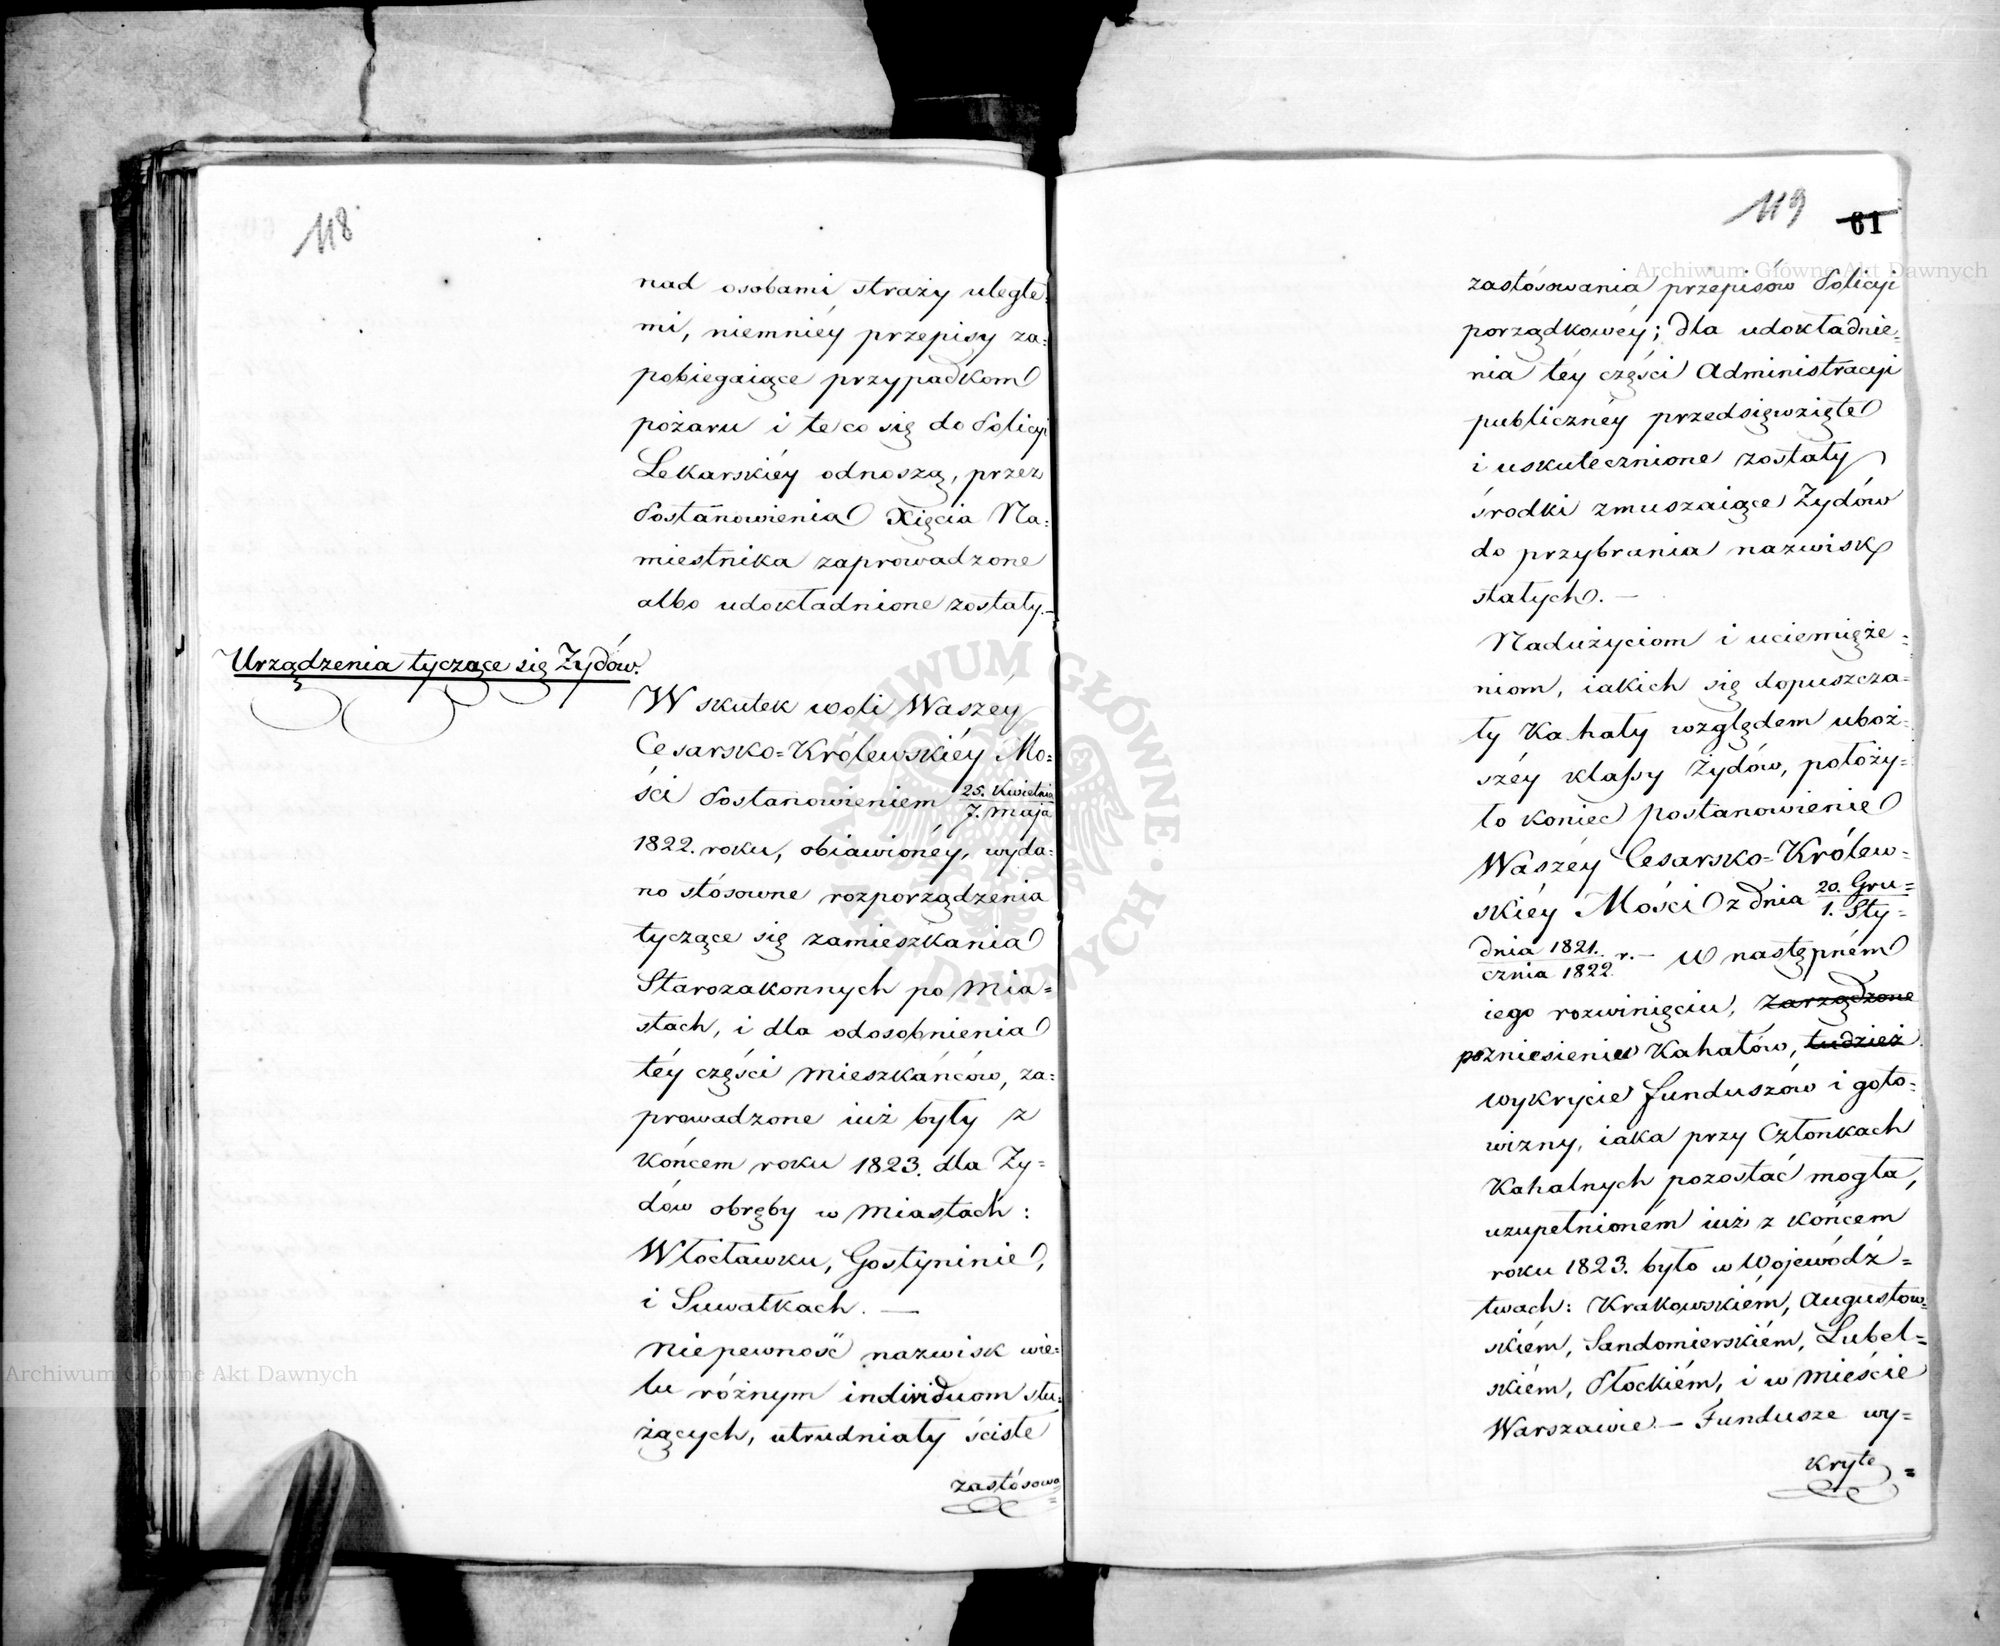 118
nad osobami straży uległe-
mi, niemniéy przepisy za=
pobiegaiące przypadkom
pożaru i te co się do Policyi
Lekarskiéy odnoszą, przez
Postanowienia Xięcia Na=
miestnika zaprowadzone
albo udokładnione zostały.—
Urządzenia tyczące się Żydów.
W skutek woli Waszéy
Cesarsko=Królewskiéy Mo=
ści Postanowieniem 25. Kwietnia
7. Maja
1822. roku, obiawionéy, wyda=
no stósowne rozporządzenia
tyczące się zamieszkania
Starozakonnych po Mia=
stach, i dla odosobnienia
téy części Mieszkańców, za=
prowadzone iuż były z
końcem roku 1823. dla Ży=
dów obręby w Miastach:
Włocławku, Gostyninie,
i Suwałkach. —
Niepewność nazwisk wie=
lu różnym individuom słu=
żących, utrudniały ścisłe
zastósowa=
119 61
zastósowania przepisów Policyi
porządkowéy; dla udokładnie=
nia téy części Administracyi
publicznéy przedsięwzięte
i uskutecznione zostały
środki zmuszaiące Żydów
do przybrania nazwisk
stałych. —
Nadużyciom i uciemięże=
niom, iakich się dopuszcza=
ły Kahały względem uboż=
széy klassy Żydów, położy=
ło koniec postanowienie
Waszéy Cesarsko=Królew=
skiéy Mości z dnia 20. Gru=
1. Sty=
dnia 1821.
cznia 1822. r.— W następném
iego rozwinięciu, zarządzone
po zniesieniu Kahałów, tudzież
wykrycie funduszów i goto=
wizny, iaka przy Członkach
Kahalnych pozostać mogła,
uzupełnioném iuż z końcem
roku 1823. było w Wojewódz=
twach: Krakowskiém, Augustow=
skiém, Sandomierskiém, Lubel=
skiém, Płockiém, i w Mieście
Warszawie.— Fundusze wy=
kryte=
Archiwum Główne Akt Dawnych
Archiwum Główne Akt Dawnych
ARCHIWUM GŁÓWNE AKT DAWNYCH